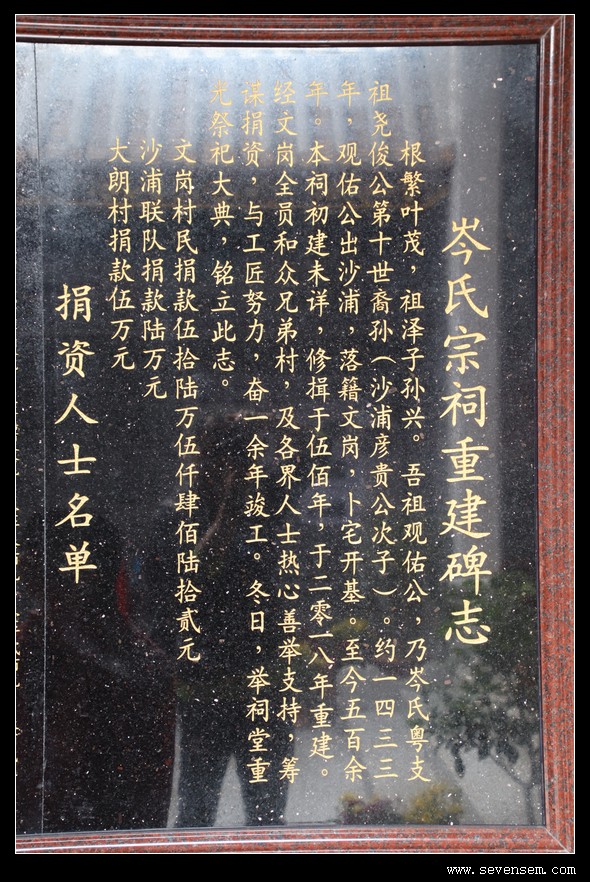 岑氏宗祠重建碑志
根繁叶茂，祖泽子孙兴。吾祖观佑公，乃岑氏粤支
祖尧俊公第十世裔孙（沙浦彦贵公次子）。约一四三三
年，观佑公出沙浦，落籍文岗，卜宅开基。至今五百余
年。本祠初建未详，修揖于伍佰年，于二零一八年重建。
经文岗全员和众兄弟村，及各界人士热心善举支持，筹
谋捐资，与工匠努力，奋一余年竣工。冬日，举祠堂重
光祭祀大典，铭立此志。
文岗村民捐款伍拾陆万伍仟肆佰陆拾贰元
沙浦联队捐款陆万元
大朗村捐款伍万元
捐资人士名单
www.sevensem.com